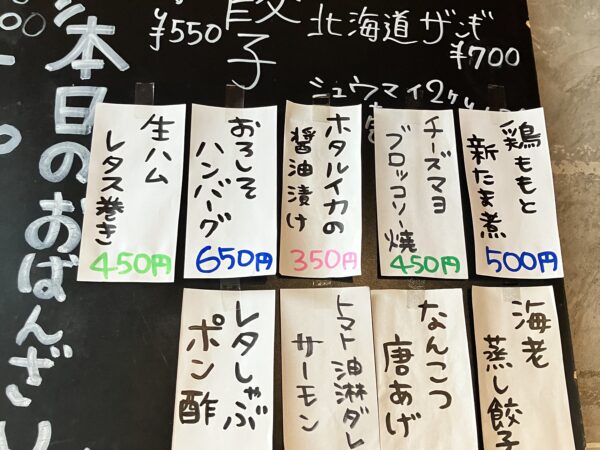 餃子
¥550
北海道ザンギ
¥700
シュウマイ2ヶ
本日のおばんざい
鶏ももと
新たま煮
500円
チーズマヨ
ブロッコリー焼
450円
ホタルイカの
醤油漬け
350円
おろしそ
ハンバーグ
650円
生ハム
レタス巻き
450円
海老
蒸し餃子
なんこつ
唐あげ
トマト油淋ダレ
サーモン
レタしゃぶ
ポン酢